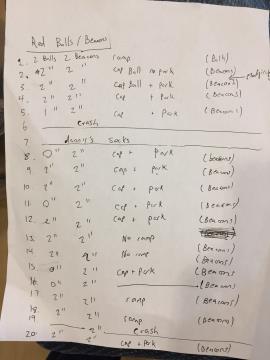 Red Balls / Beacons
1. 2 Balls 2 Beacons ramp (Balls)
2. 2" 2" Cap Ball no park (Beacons)
3. 2" 2" Cap Ball + park (Beacons)
4. 2" 2" Cap + Park (Beacons)
5. 1" 2" Cap + Park (Beacons)
6. crash
7. Socks
8. 0" 2" Cap + Park (beacons)
9. 2" 2" Cap + park (Beacons)
10. 2" 2" Cap + park (Beacons)
11. 0" 2" Cap + park (Beacons)
12. 2" 2" Cap + Park (Beacons)
13. 2" 2" No ramp (Beacons)
14. 2" 2" No ramp (Beacons)
15. 0" 2" Cap + Park (Beacons)
16. 0" 2" (Beacons)
17. 2" 2" ramp (Beacons)
18. 2" 2" ramp (Beacons)
19. crash
20. 2" 2" Cap + Park (Beacons)